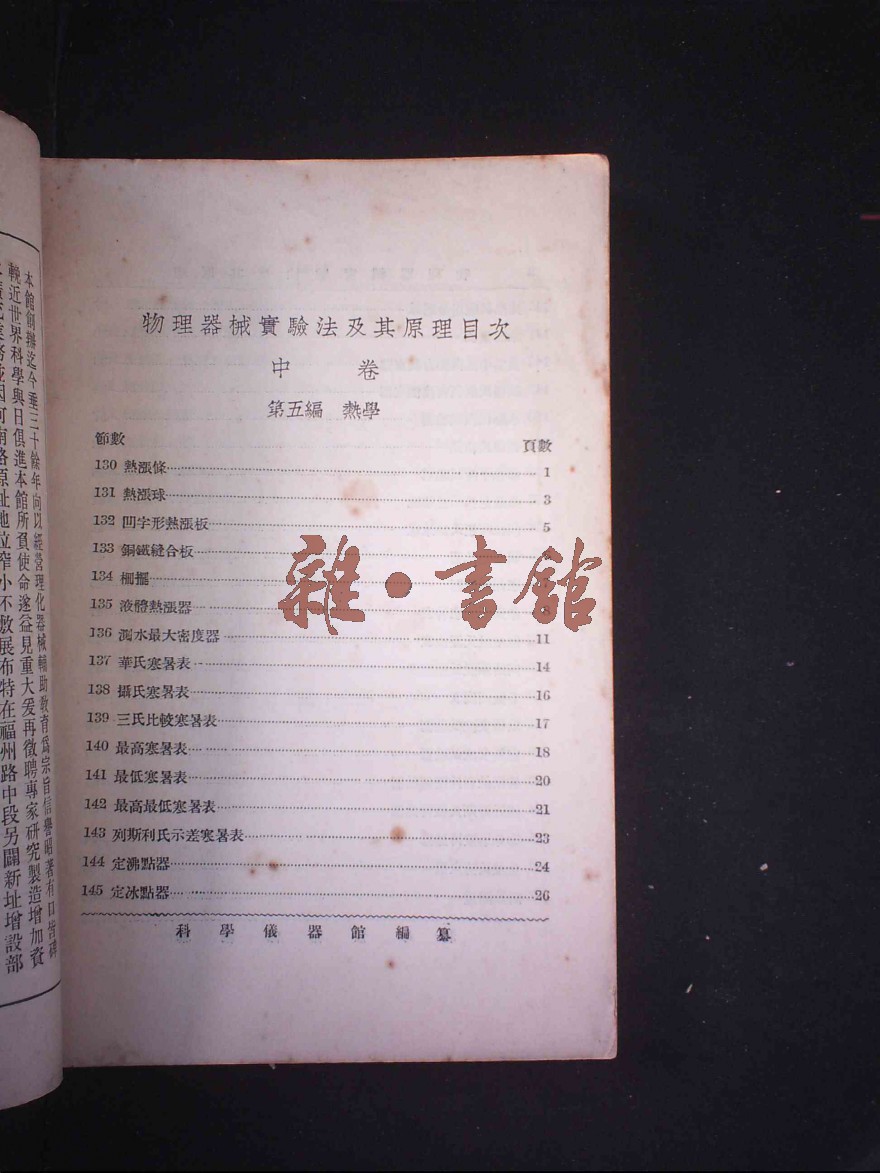 物理器械實驗法及其原理目次
中 卷
第五編 熱學
節數 頁數
130 熱漲條 1
131 熱漲球 3
132 凹字形熱漲板 5
133 銅鐵縫合板
134 柵擺
135 液體熱漲器 8
136 測水最大密度器 11
137 華氏寒暑表 14
138 攝氏寒暑表 16
139 三氏比較寒暑表 17
140 最高寒暑表 18
141 最低寒暑表 20
142 最高最低寒暑表 21
143 列斯利氏示差寒暑表 23
144 定沸點器 24
145 定冰點器 26
科學儀器館編纂
雜·書館
本館創辦迄今垂三十餘年向以經營理化器械輔助教育爲宗旨信譽昭著有口皆碑
輓近世界科學與日俱進本館所負使命遂益見重大爰再徵聘專家研究製造增加資
因河南路原址地位窄小不敷展布特在福州路中段另闢新址增設部